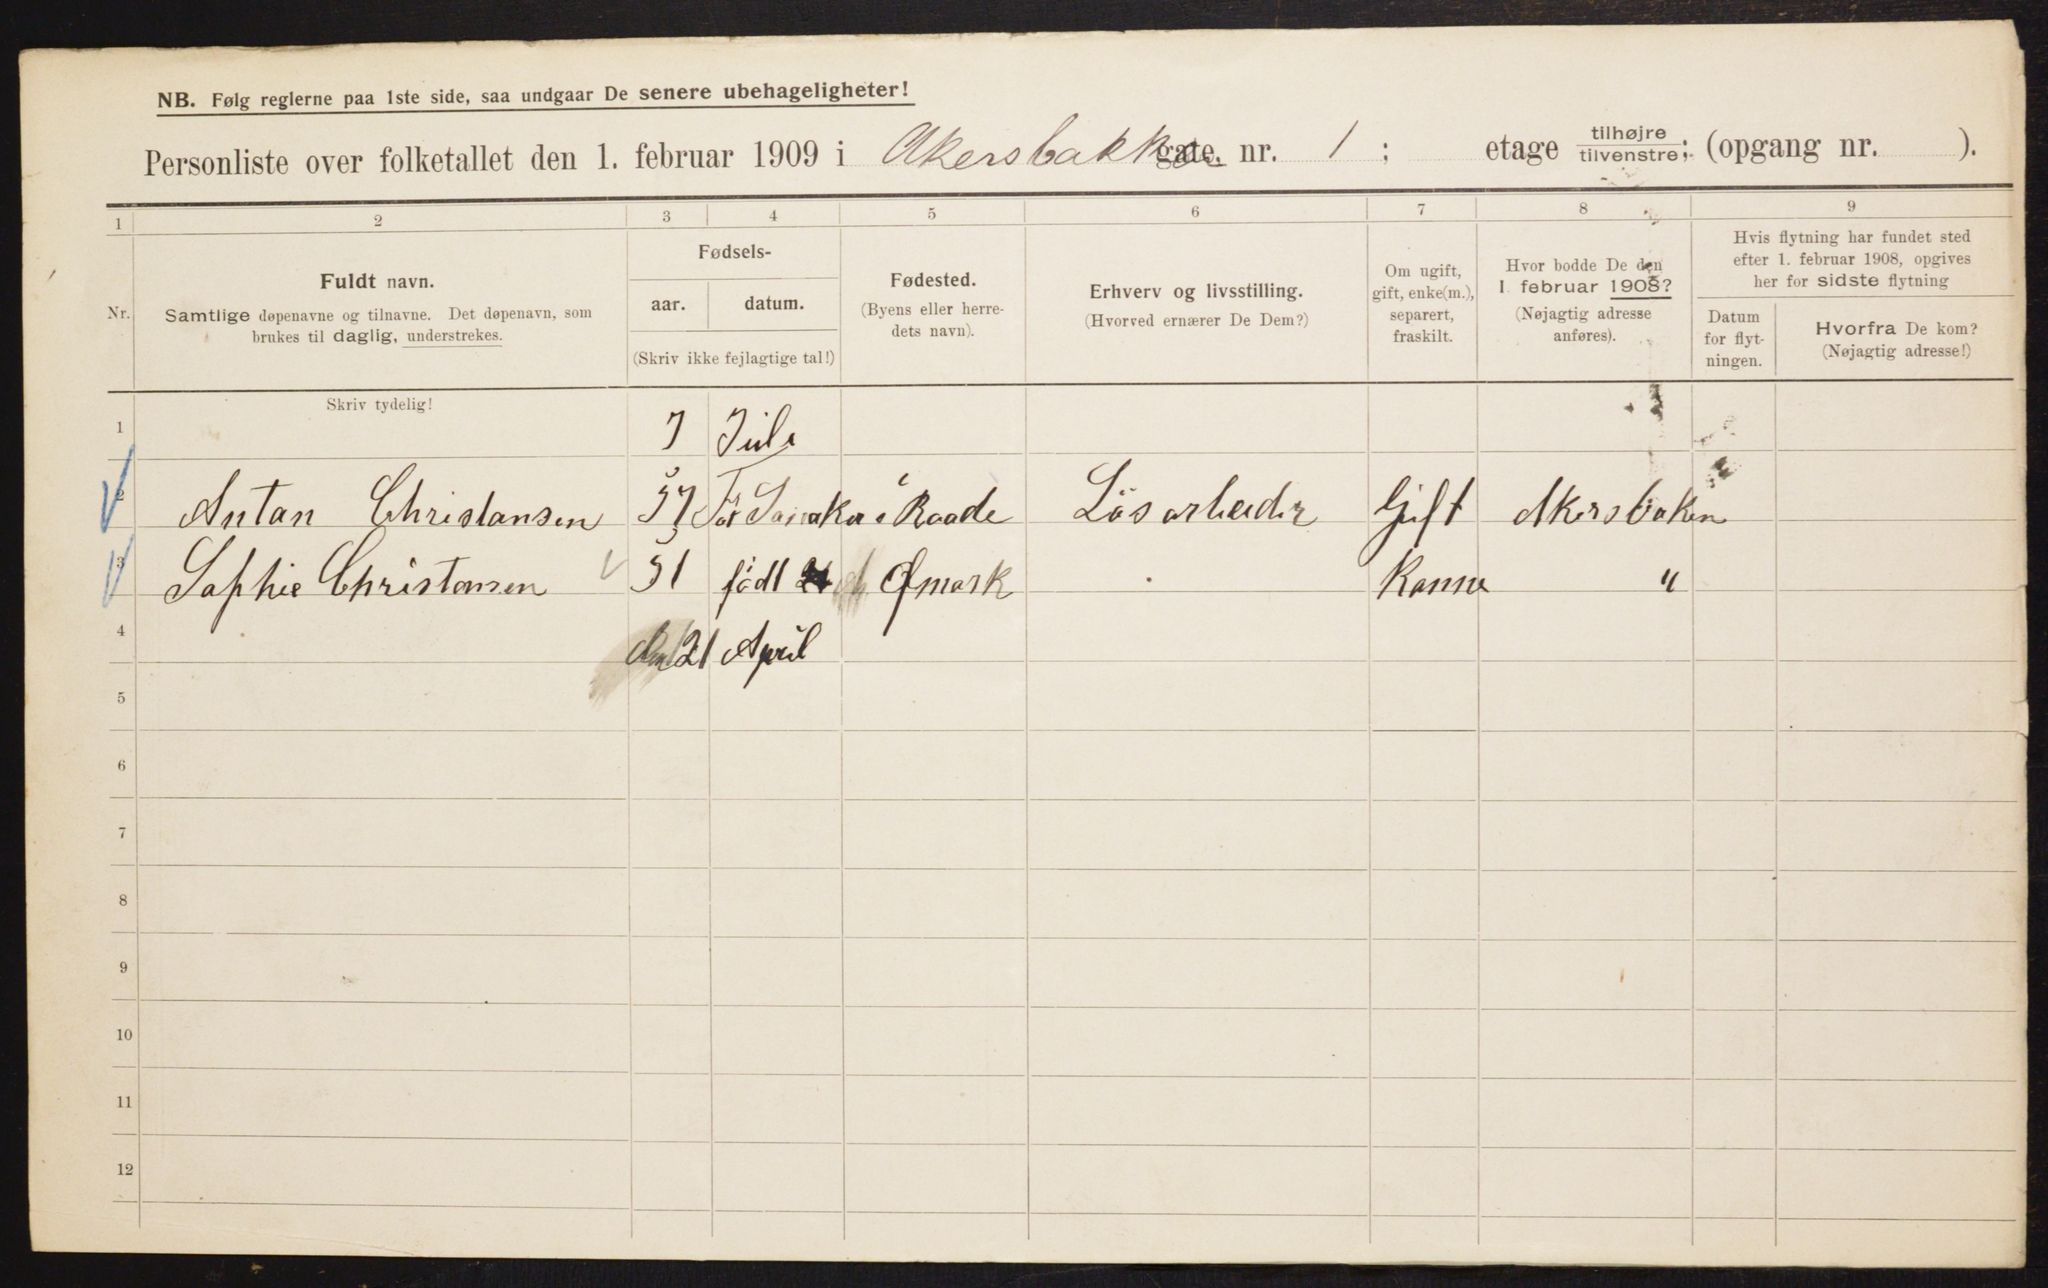 NB. Følg reglerne paa 1ste side, saa undgaar De senere ubehageligheter!
Personliste over folketallet den 1. februar 1909 i Akersbakken gate. nr. 1 ; etage tilhøjre tilvenstre; (opgang nr. ).
1 2 3 4 5 6 7 8 9
Nr.
Fuldt navn.
Samtlige døpenavne og tilnavne. Det døpenavn, som
brukes til daglig, understrekes.
Fødsels-
aar. datum.
(Skriv ikke fejlagtige tal!)
Fødested.
(Byens eller herre-
dets navn).
Erhverv og livsstilling.
(Hvorved ernærer De Dem?)
Om ugift,
gift, enke(m.),
separert,
fraskilt.
Hvor bodde De den
1. februar 1908?
(Nøjagtig adresse
anføres).
Hvis flytning har fundet sted
efter 1. februar 1908, opgives
her for sidste flytning
Datum
for flyt-
ningen.
Hvorfra De kom?
(Nøjagtig adresse!)
Skriv tydelig!
1 7 Juli
2 Antan Christansen 57 i Raade Lösarbeider Gift Akersbaken
3 Saphie Christansen 51 födt Ømark Kanne "
4 den 21 April
5
6
7
8
9
10
11
12